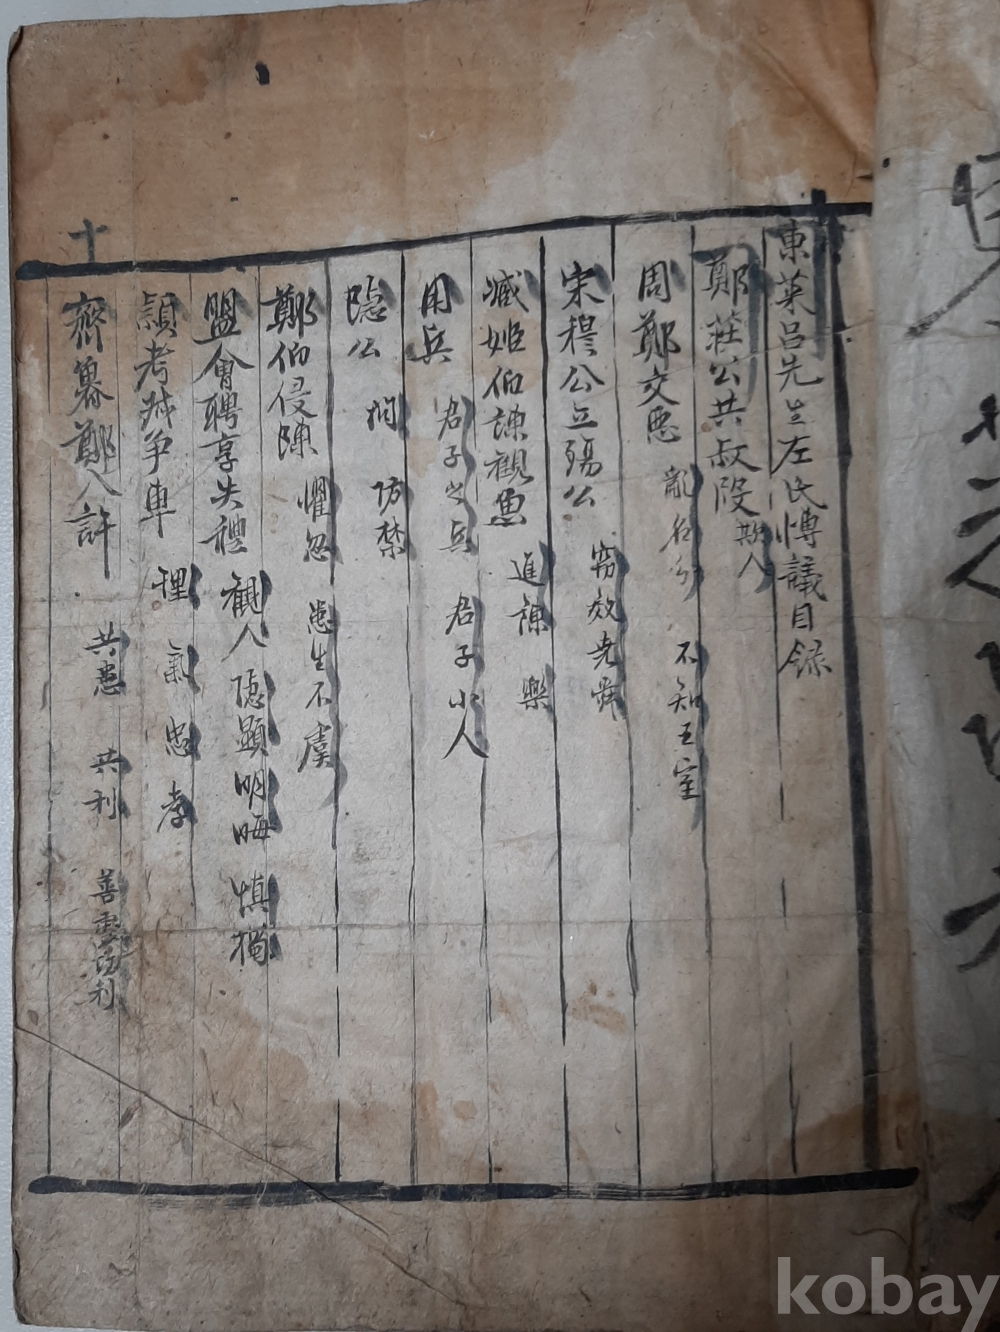 東萊呂先生左氏博議目録
鄭莊公共叔段 欺人
周鄭交惡 亂名分 不知王室
宋穆公立殤公 竊效堯舜
臧姬伯諫觀魚 進諫 樂
用兵 君子之兵 君子小人
隐公 防禁
鄭伯侵陳 懼忽 患生不虞
盟會聘享失禮 観人 隠顯明晦 慎獨
頴考叔争車 理 氣 忠 孝
十
齊魯鄭入許 共患 共利 善處
kobay